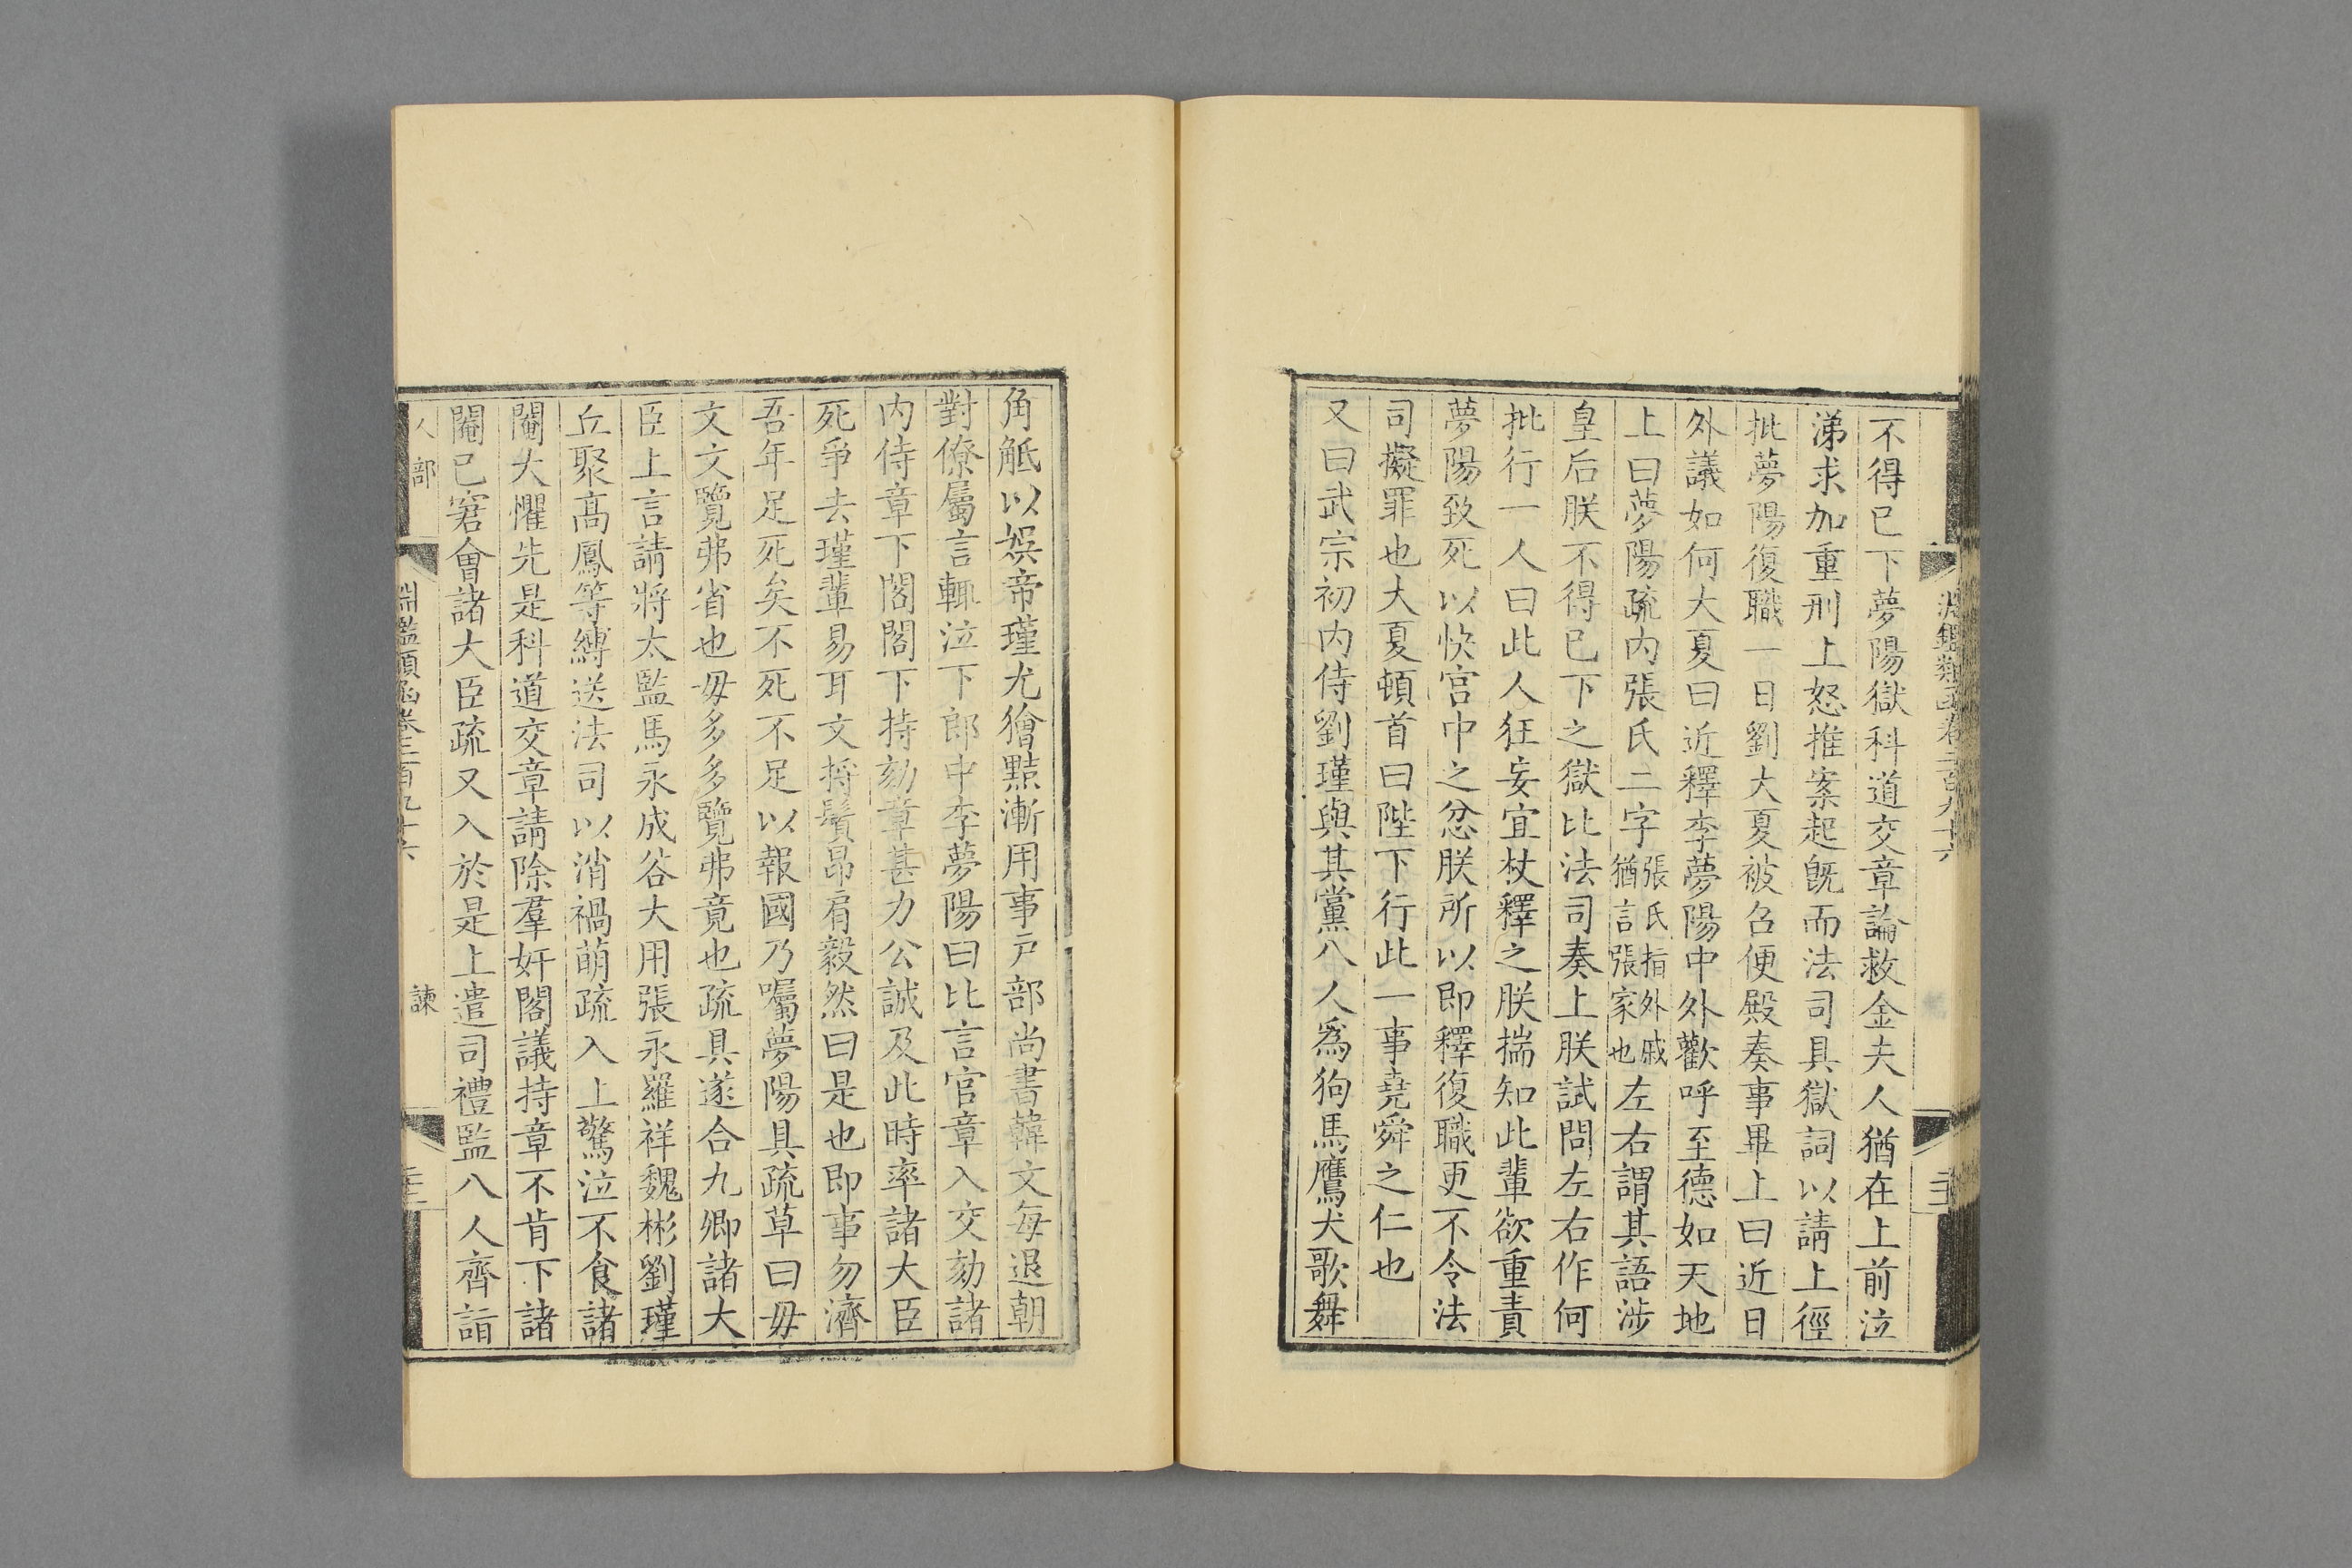 不得已下夢陽獄科道交章論救金夫人猶在上前泣
涕求加重刑上怒推案起旣而法司具獄詞以請上徑
批夢陽復職一日劉大夏被召便殿奏事畢上曰近日
外議如何大夏曰近釋李夢陽中外歡呼至德如天地
上曰夢陽疏内張氏二字張氏指外戚猶言張家也左右謂其語涉
皇后朕不得已下之獄比法司奏上朕試問左右作何
批行一人曰此人狂妄宜杖釋之朕揣知此輩欲重責
夢陽致死以快宫中之忿朕所以即釋復職更不令法
司擬罪也大夏頓首曰陛下行此一事堯舜之仁也
又曰武宗初内侍劉瑾與其黨八人爲狗馬鷹犬歌舞
角觝以娱帝瑾尤獪黠漸用事戸部尚書韓文每退朝
對僚屬言輒泣下郎中李夢陽曰比言官章入交劾諸
内侍章下閣閣下持劾章甚力公誠及此時率諸大臣
死爭去瑾輩易耳文捋鬚昂肩毅然曰是也即事勿濟
吾年足死矣不死不足以報國乃囑夢陽具疏草曰毋
文文覽弗省也毋多多覽弗竟也疏具遂合九卿諸大
臣上言請將太監馬永成谷大用張永羅祥魏彬劉瑾
丘聚高鳳等縛送法司以消禍萌疏入上驚泣不食諸
閹大懼先是科道交章請除羣奸閣議持章不肯下諸
閹已窘會諸大臣疏又入於是上遣司禮監八人齊詣
人部
淵鑑類函卷二百九十六
諫